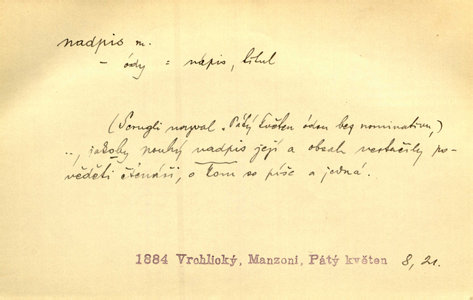 nadpis m.
– ódy = nápis, titul
(Scrugli nazval „Pátý květen ódou bez nominativu,)
.., jakoby pouhý nadpis její a obsah nestačily po-
věděti čtenáři, o kom se píše a jedná.
1884 Vrchlický, Manzoni, Pátý květen 8, 21.